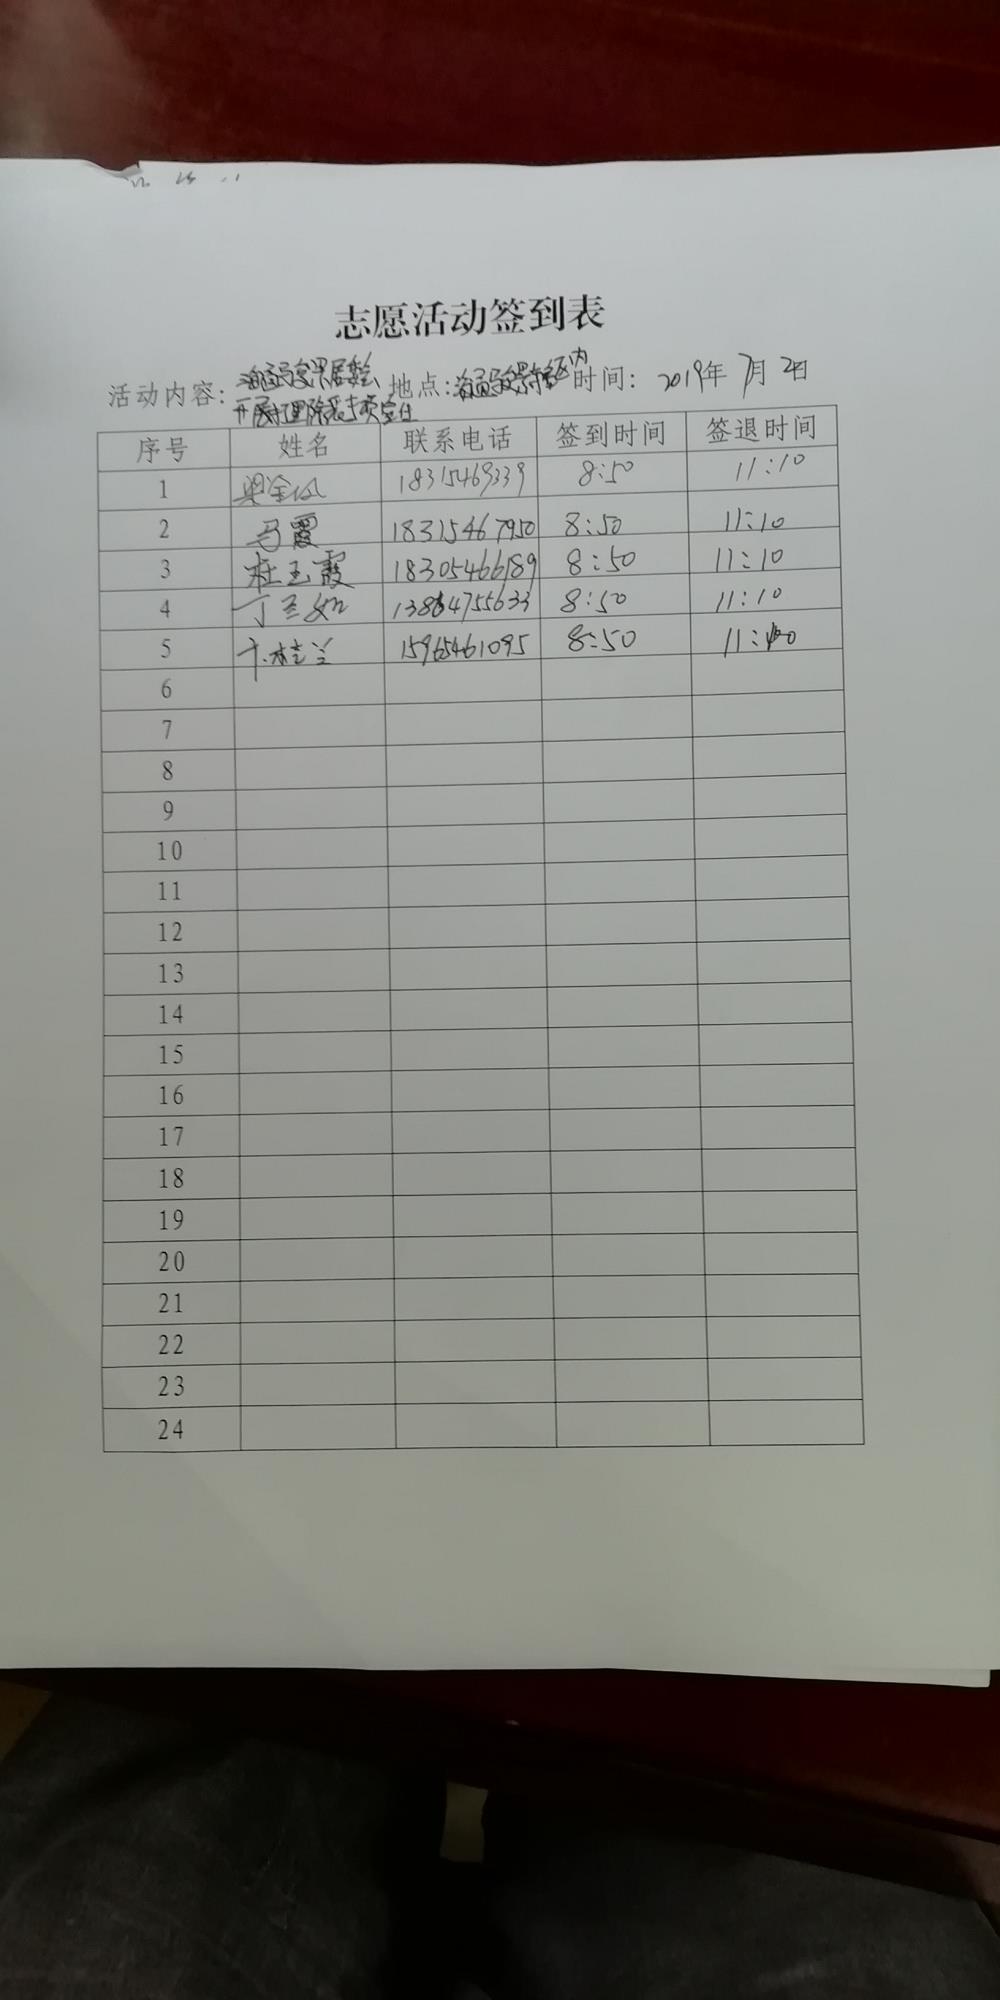 志愿活动签到表
活动内容: 地点: 内 时间: 2019年7月2日
开展
序号 姓名 联系电话 签到时间 签退时间
1 梁金凤 18315469339 8:50 11:10
2 马霞 18315467950 8:50 11:10
3 杜玉霞 18305466189 8:50 11:10
4 丁 13864755633 8:50 11:10
5 桂兰 15965461095 8:50
6
7
8
9
10
11
12
13
14
15
16
17
18
19
20
21
22
23
24